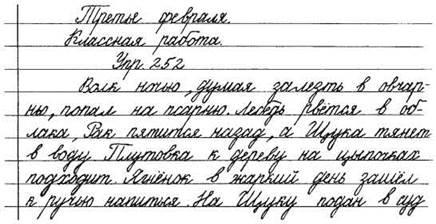 Третье февраля.
Классная работа.
Упр. 252
Волк ночью, думая залезть в овчар-
ню, попал на псарню. Лебедь рвётся в об-
лака, Рак пятится назад, а Щука тянет
в воду Плутовка к дереву на цыпочках
подходит. Ягнёнок в жаркий день зашёл
к ручью напиться. На Щуку подан в суд